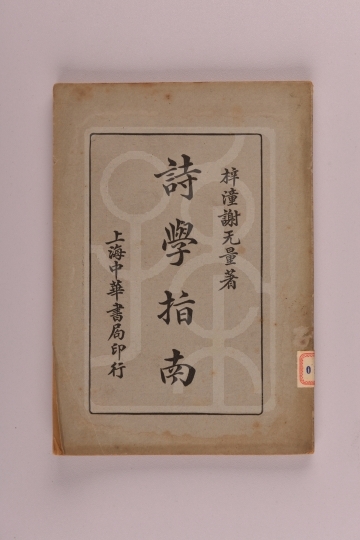 梓潼謝无量著
詩學指南
上海中華書局印行
0